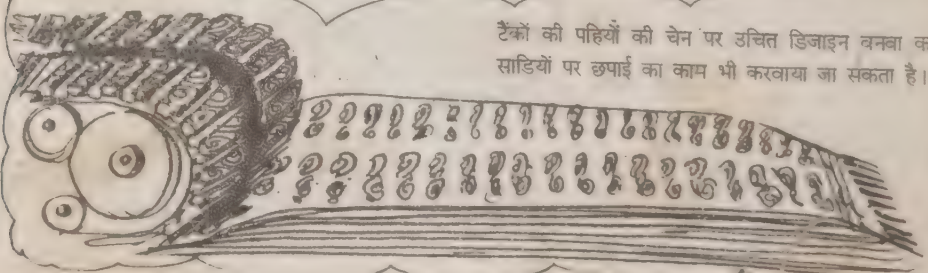 टैंकों की पहियों की चेन पर उचित डिजाइन बनवा
साडियों पर छपाई का काम भी करवाया जा सकता है।